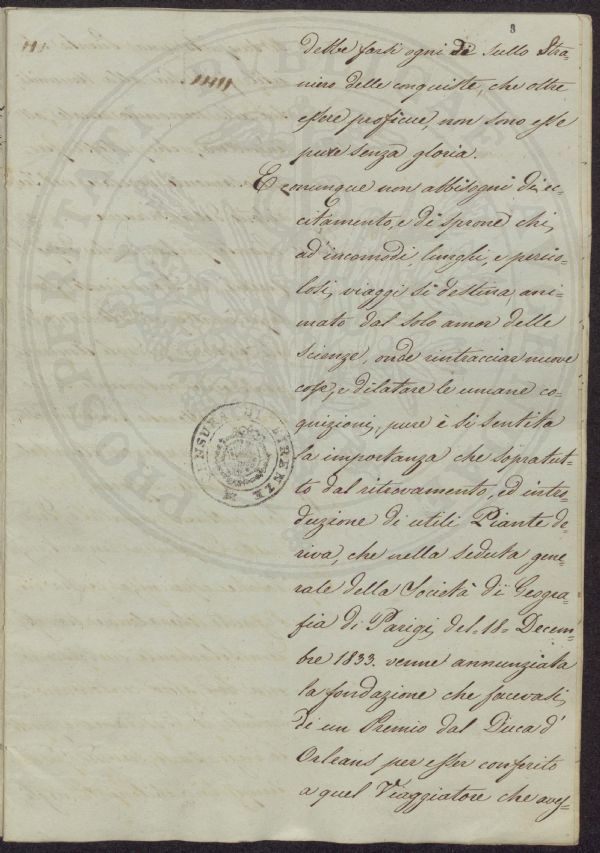 8
debbe farsi ogni dì sullo Stra-
niero delle conquiste, che oltre
essere proficue, non sono esse
pure senza gloria.
E comunque non abbisogni di ec-
citamento, e di sprone chi,
ad incomodi, lunghi, e perico-
losi, viaggi si destina, ani-
mato dal solo amor delle
scienze, onde rintracciar nuove
cose, e dilatare le umane co-
gnizioni, pure è si sentita
la importanza che sopratut-
to dal ritrovamento, ed intro-
duzione di utili Piante de-
riva, che nella seduta gene-
rale della Società di Geogra-
fia di Parigi, del 18 Decem-
bre 1833. venne annunziata
la fondazione che facevasi,
di un Premio dal Duca d'
Orleans per esser conferito
a quel Viaggiatore che aves-
PROSPERITATI PUBLICAE